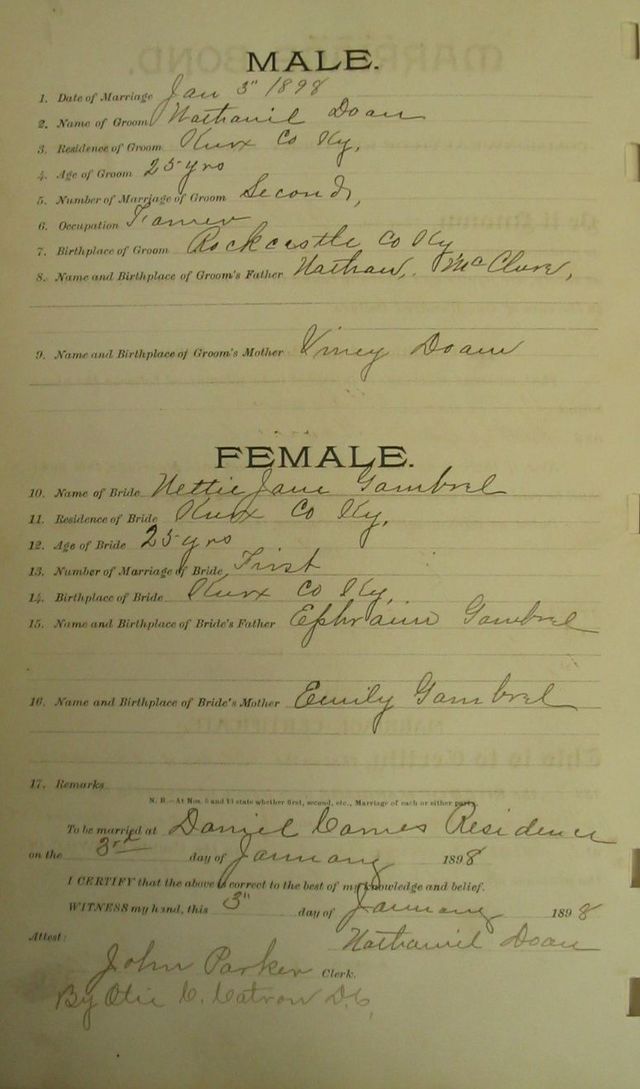 MALE.
1. Date of Marriage Jan 3" 1898
2. Name of Groom Nathanil Doan
3. Residence of Groom Knox Co Ky,
4. Age of Groom 25 yrs
5. Number of Marriage of Groom Second,
6. Occupation Farmer
7. Birthplace of Groom Rockcastle Co Ky
8. Name and Birthplace of Groom's Father Nathan, McClure,
9. Name and Birthplace of Groom's Mother Viney Doan
FEMALE.
10. Name of Bride Nettie Jane Gambrel
11. Residence of Bride Knox Co Ky,
12. Age of Bride 25 yrs
13. Number of Marriage of Bride First
14. Birthplace of Bride Knox Co Ky,
15. Name and Birthplace of Bride's Father Ephraim Gambrel
16. Name and Birthplace of Bride's Mother Emily Gambrel
17. Remarks
N. B.—At Nos. 5 and 13 state whether first, second, etc., Marriage of each or either party.
To be married at Daniel Carnes Residence
on the 3rd day of January 1898
I CERTIFY that the above is correct to the best of my knowledge and belief.
WITNESS my hand, this 3" day of January 1898
Attest: Nathanil Doan
John Parker Clerk.
By Otie C. Catron D.C,